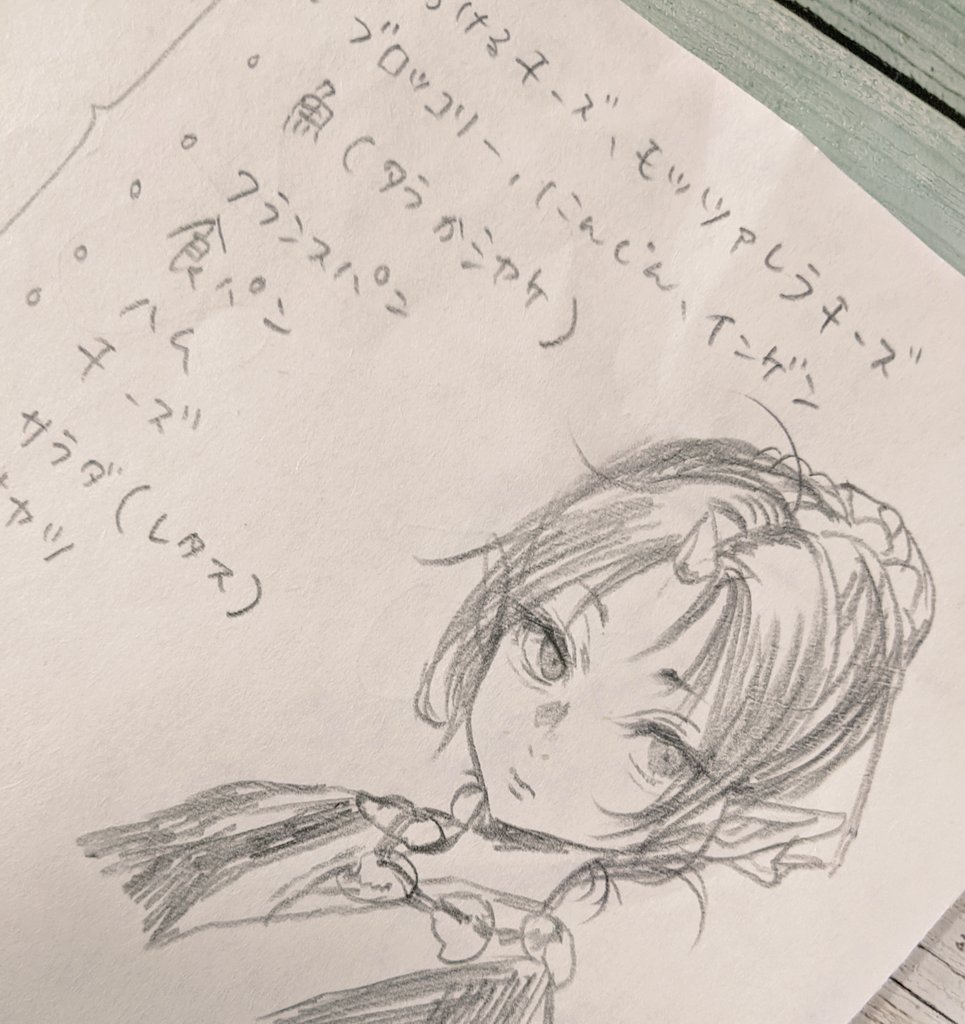 けるチーズ、モッツァレラチーズ
ブロッコリー、にんじん、インゲン
○ 魚(タラかシャケ)
○ フランスパン
○ 食パン
○ ハム
○ チーズ
サラダ(レタス)